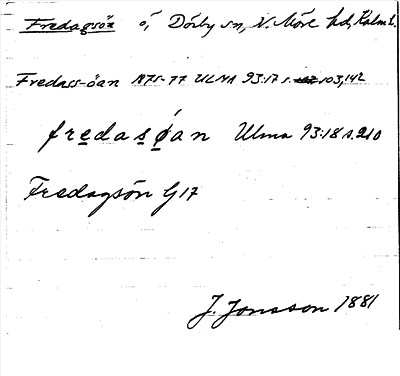 Fredagsön ö, Dörby sn, N. Möre hd, Kalm. l.
Fredass-öan A75-77 ULMA 93:17 s. 103, 142
fredasøan Ulma 93:18 s. 210
Fredagsön G17
J. Jonsson 1881